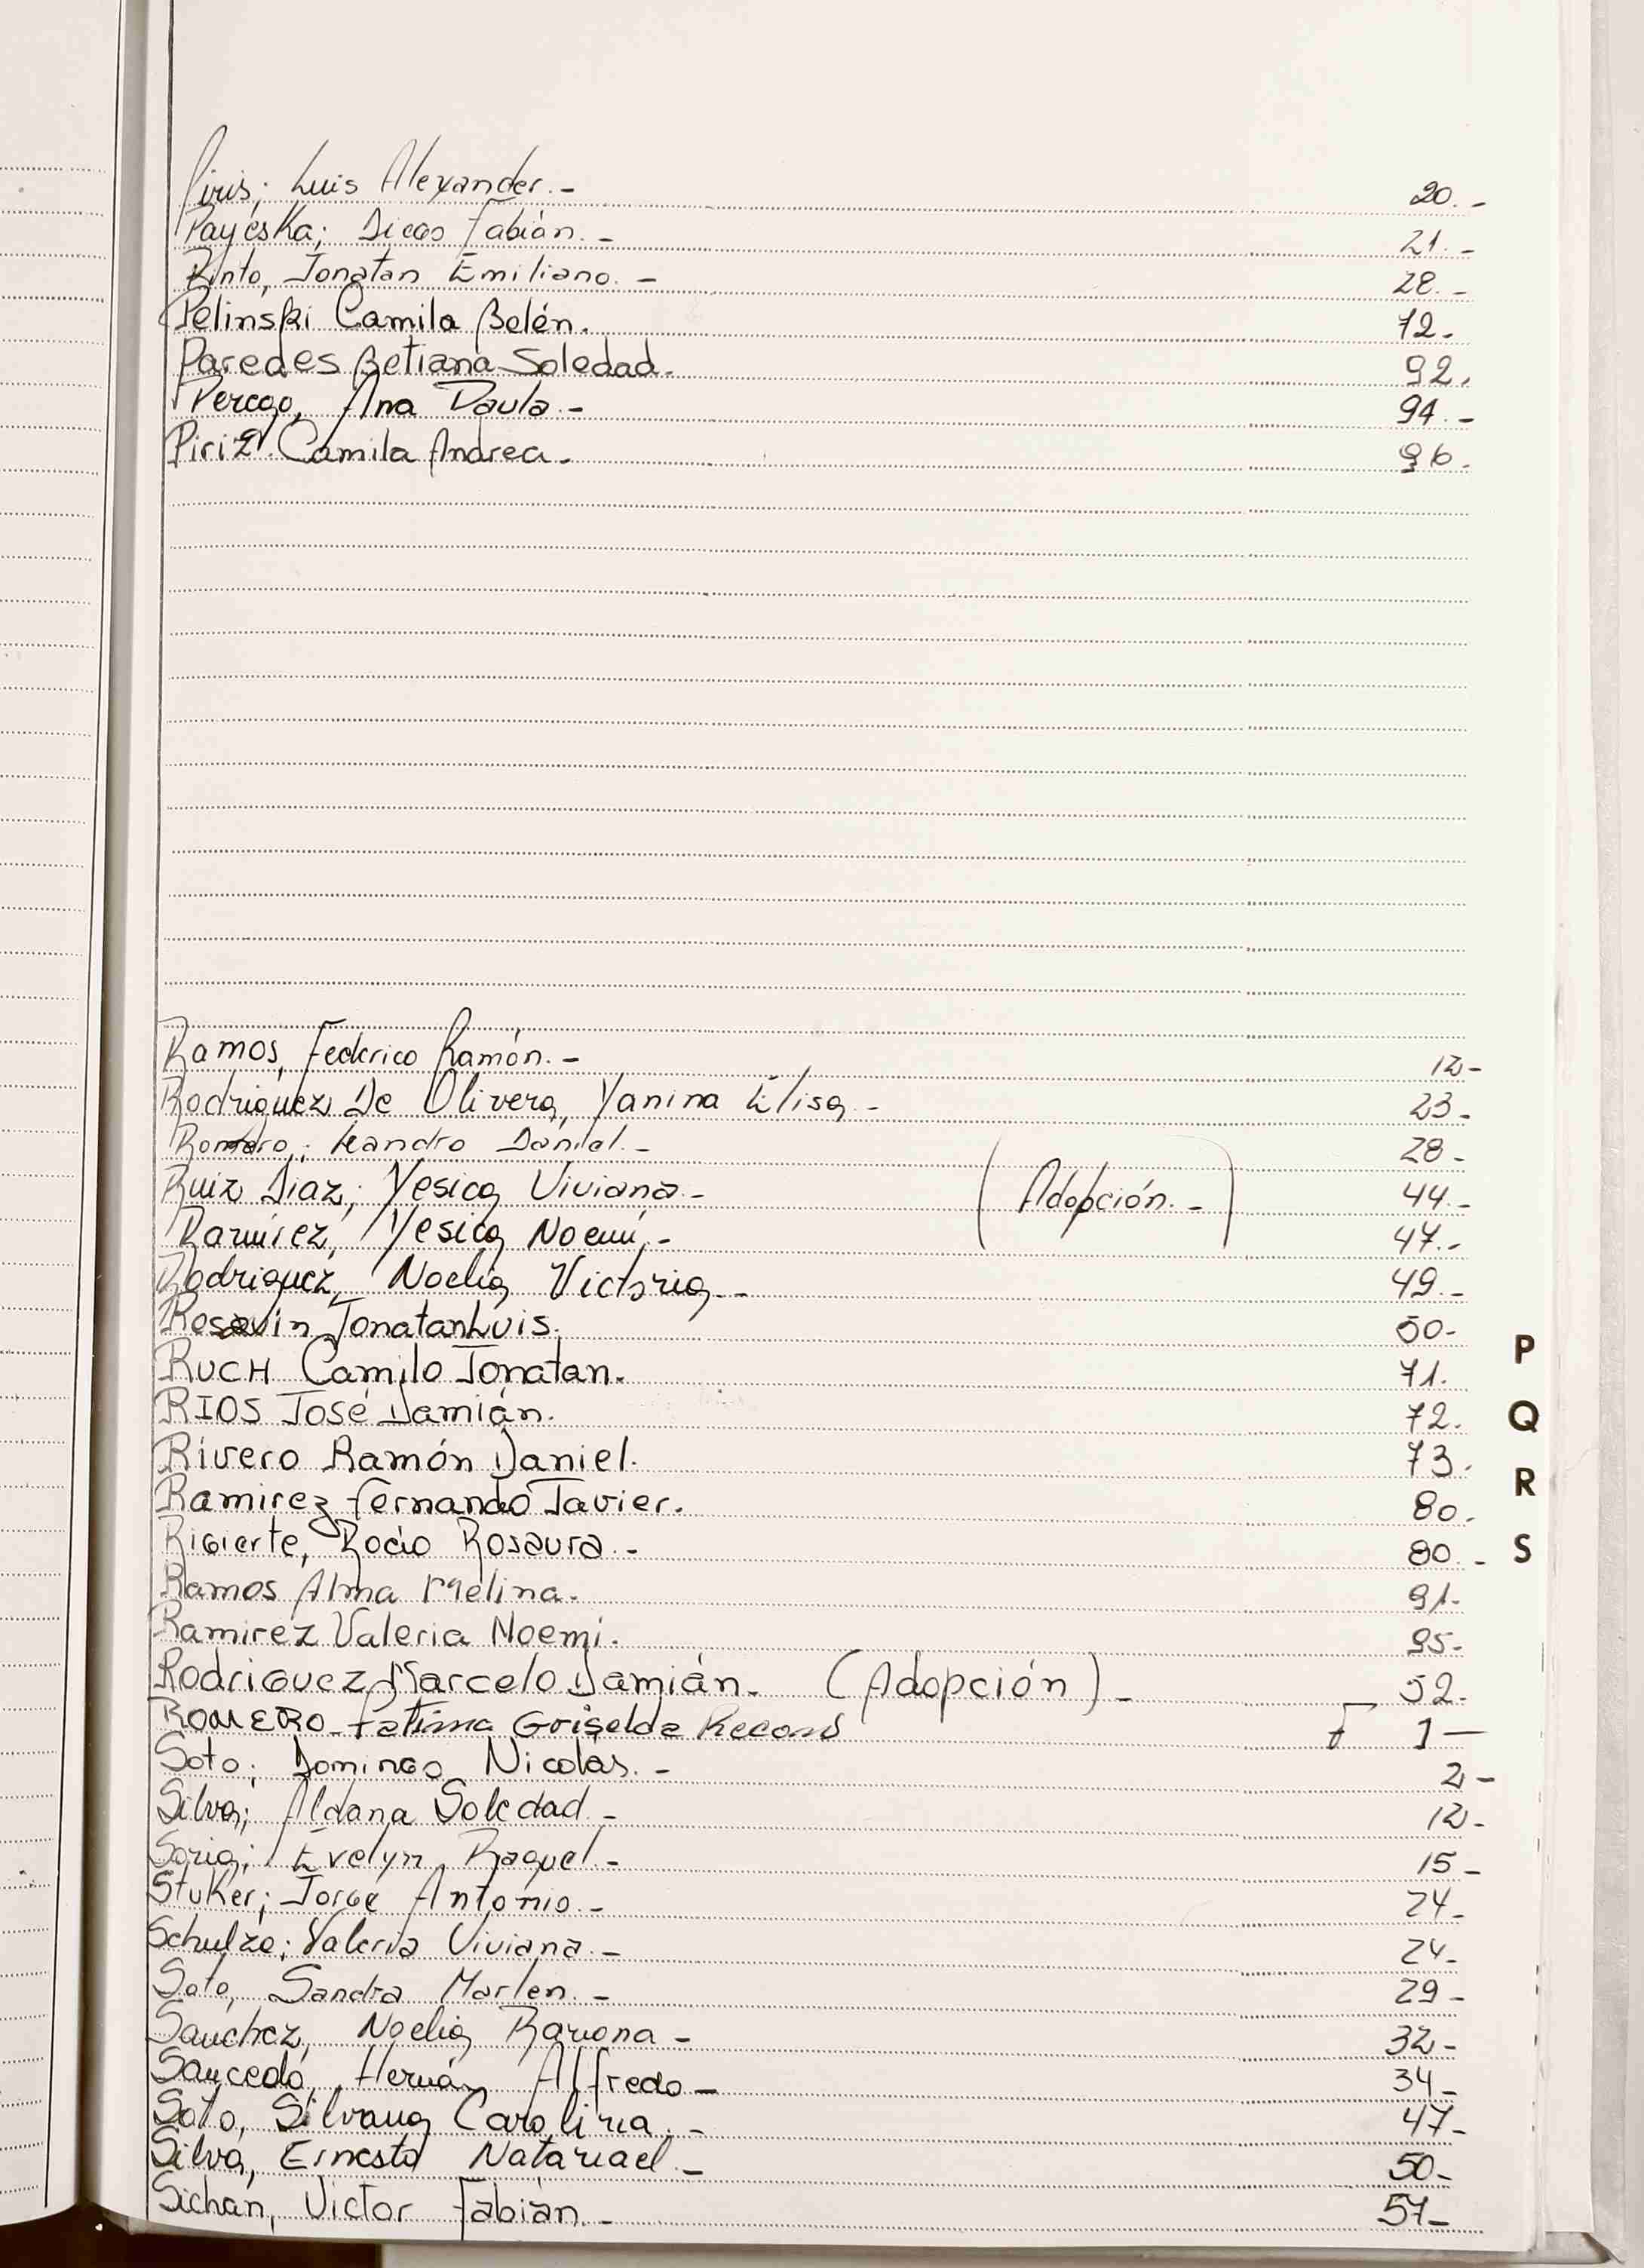 Piris; Luis Alexander.- 20.-
Payeska; Diego Fabián.- 21.-
Pinto, Jonatan Emiliano.- 28.-
Pelinski Camila Belén. 72.
Paredes Betiana Soledad. 92.
Perego, Ana Paula.- 94.-
Piriz Camila Andrea. 96.
Ramos, Federico Ramón.- 12-
Rodriguez De Olivera, Yanina Elisa - 23-
Romero; Leandro Daniel.- 28-
Ruiz Diaz; Yesica Viviana.- (Adopción.-) 44.-
Ramírez, Yesica Noemí.- 47.-
Rodriguez, Noelia Victoria.- 49.-
Jonatan Luis. 50-
RUCH Camilo Jonatan. 71.
RIOS José Damián. 72.
Rivero Ramón Daniel. 73.
Ramirez Fernando Javier. 80.
Rigierte, Rocio Rosaura.- 80.-
Ramos Alma Melina. 91-
Ramirez Valeria Noemi. 95-
Rodriguez Marcelo Damián. (Adopción)- 52-
ROMERO Fatima Griselda Recono F 1-
Soto; Domingo Nicolas.- 2-
Silva; Aldana Soledad.- 12-
Soria; Evelyn Raquel.- 15-
Stuker; Jorge Antonio.- 24-
Schulze; Valeria Viviana.- 24-
Soto, Sandra Marlen.- 29-
Sanchez, Noelia Ramona- 32-
Saucedo, Hernán Alfredo- 34-
Soto, Silvana Carolina.- 47-
Silva, Ernesto Natanael- 50-
Sichan, Victor Fabián.- 57-
P
Q
R
S